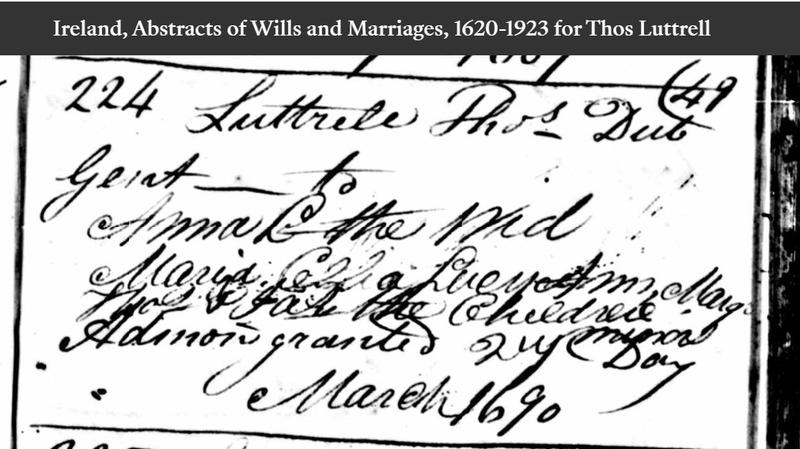 Ireland, Abstracts of Wills and Marriages, 1620-1923 for Thos Luttrell
(49
224 Luttrele Thos Dub
Gent — to
Anna L the Wid
Maria Luey Ann Marg
Thos & the Children
Admon granted 24 minor
Day
March 1690